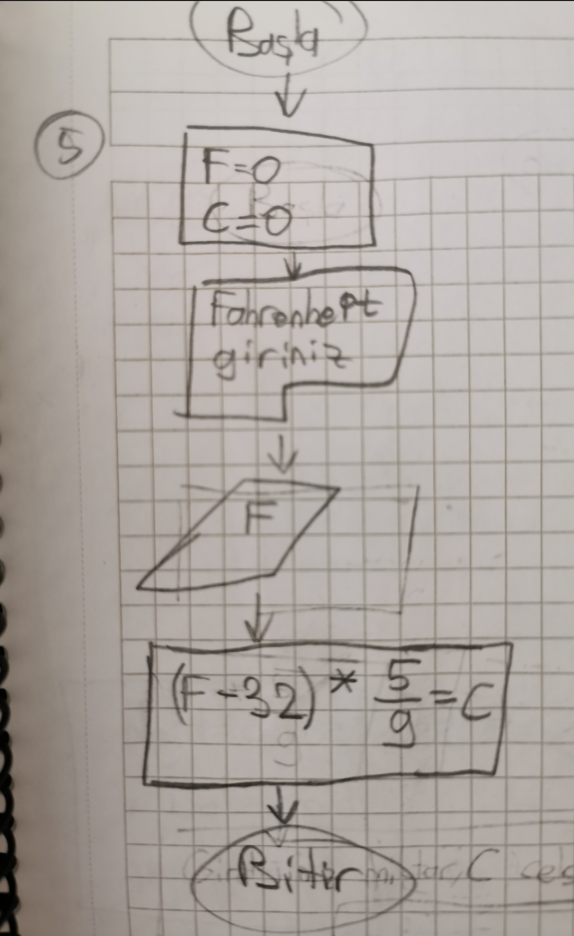 Başla
5
F=0
C=0
Fahrenheit
giriniz
F
(F-32) * 5/9 = C
Biter